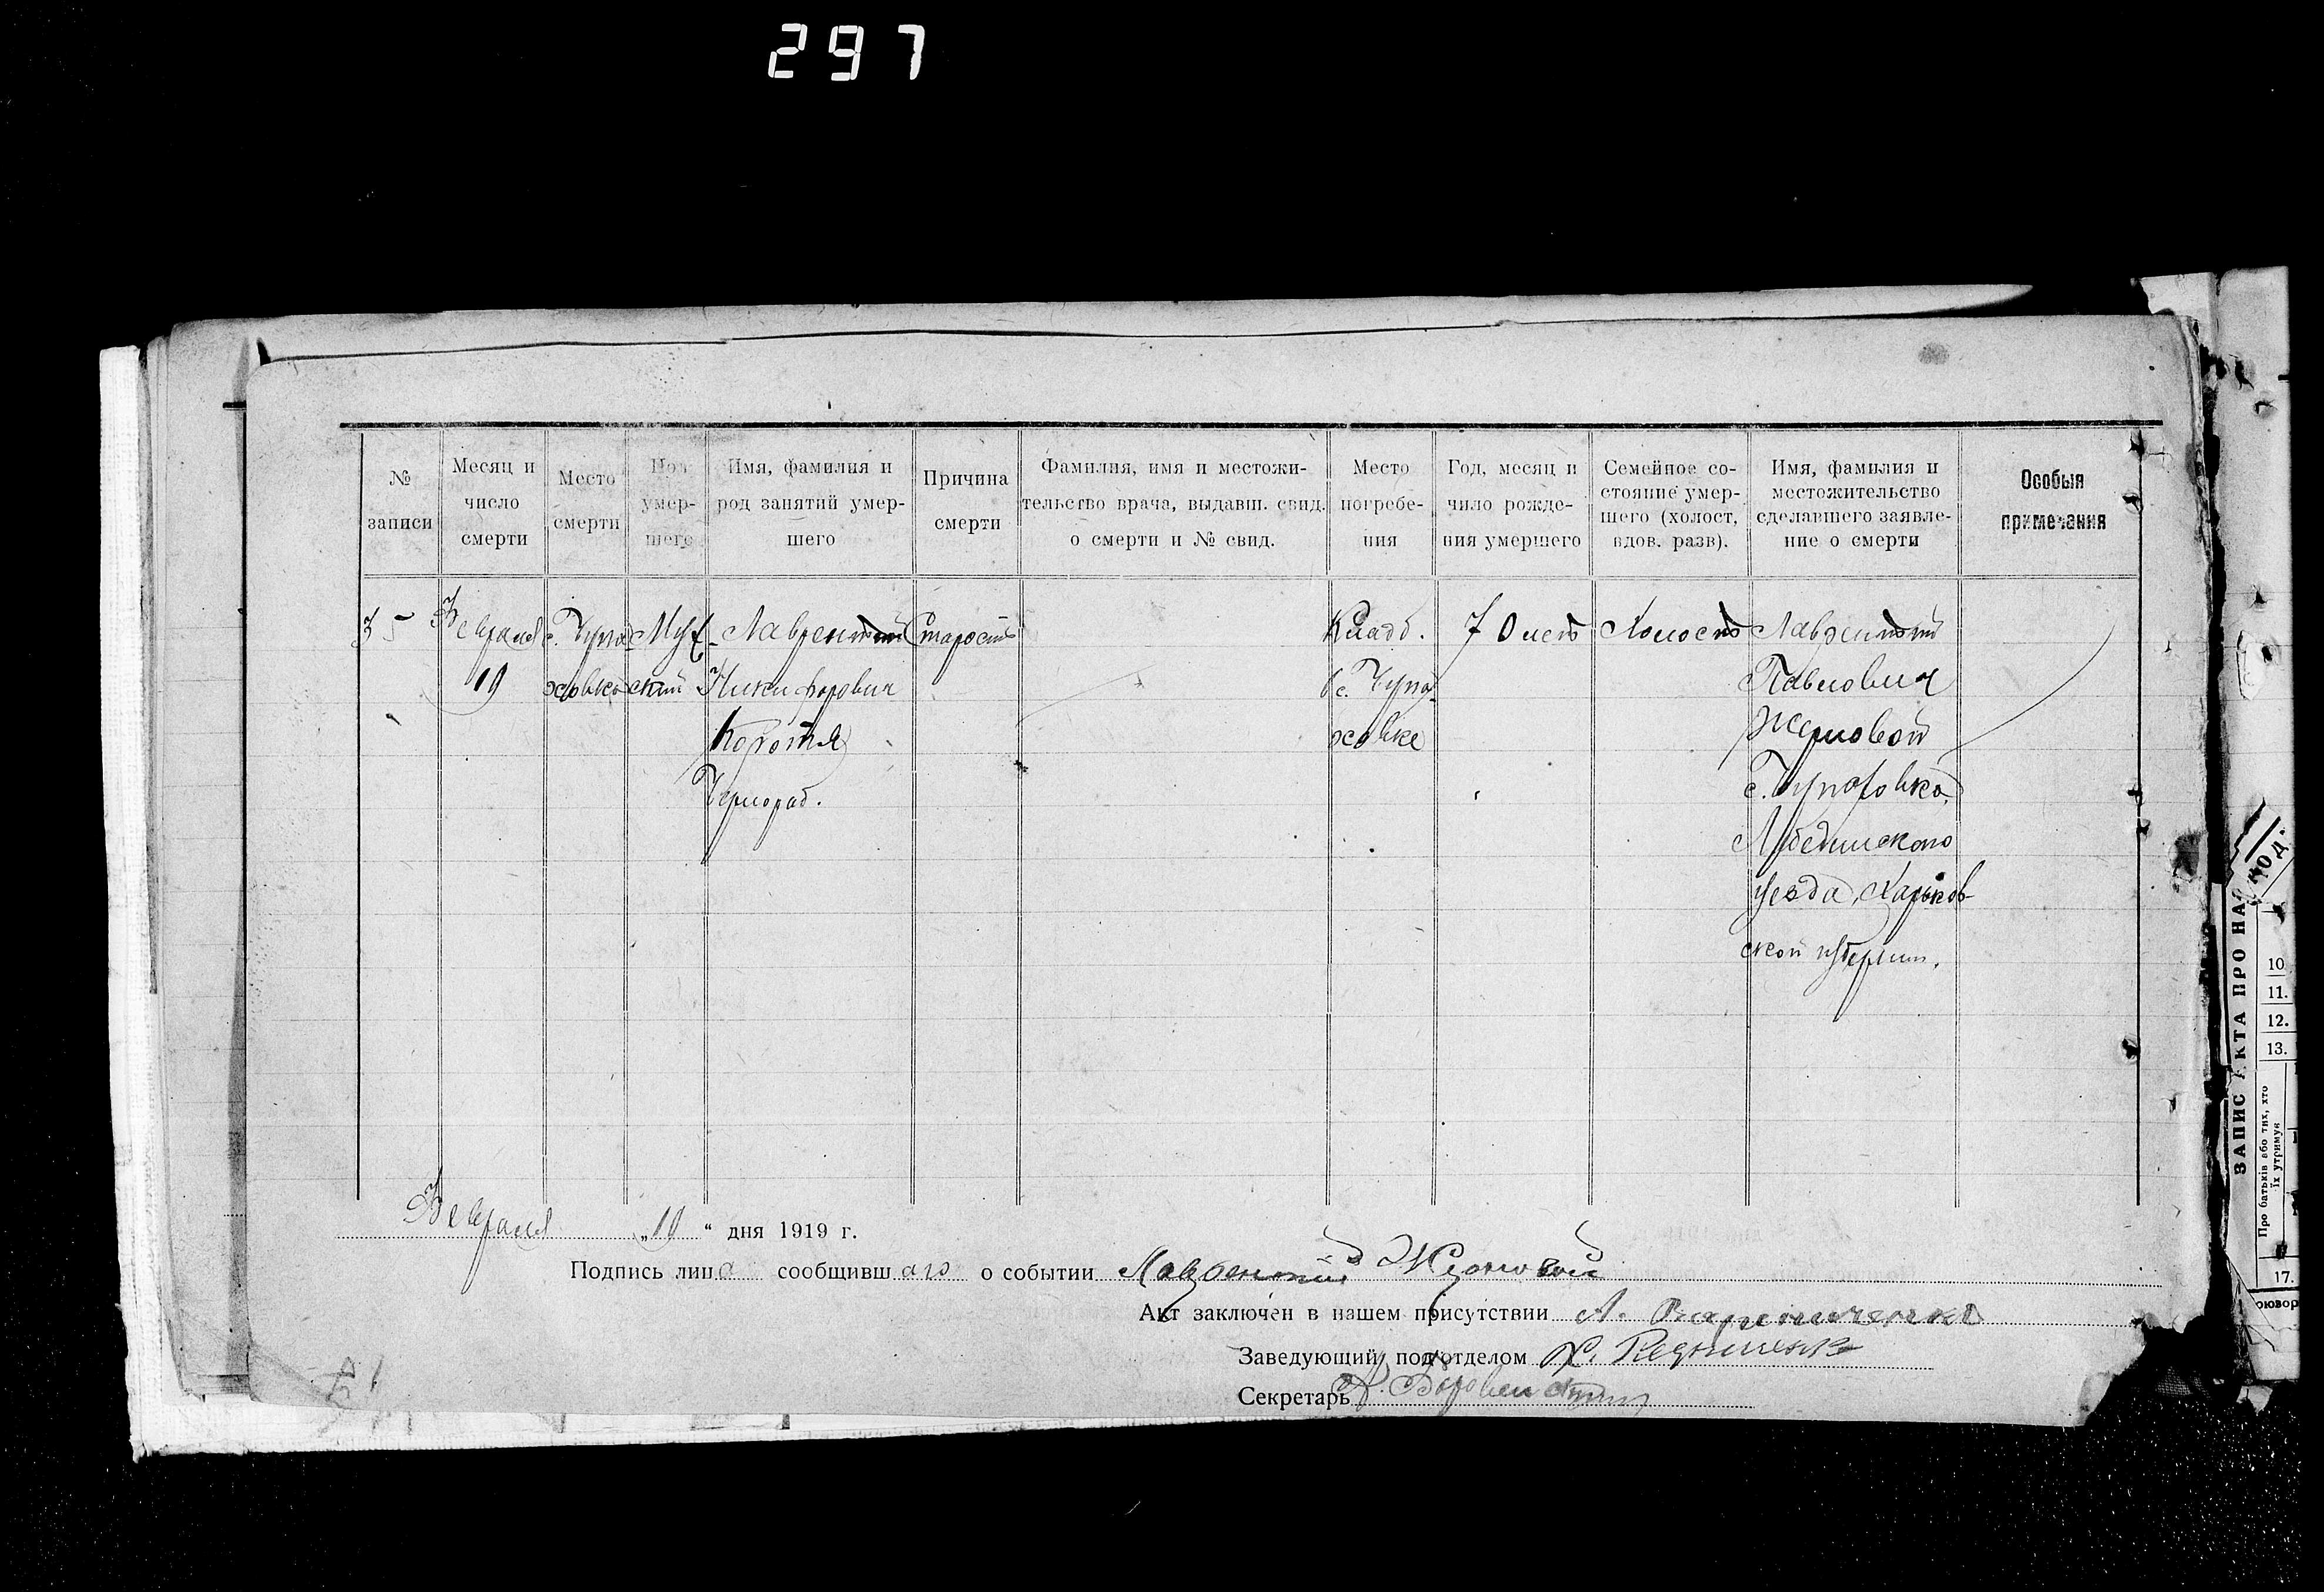 297
№ записи
Месяц и число смерти
Место смерти
Пол умер-шего
Имя, фамилия и род занятий умер-шего
Причина смерти
Фамилия, имя и местожи-тельство врача, выдавш. свид. о смерти и № свид.
Место погребе-ния
Год, месяц и чило рожде-ния умершего
Семейное со-стояние умер-шего (холост, вдов. разв).
Имя, фамилия и местожительство сделавшего заявле-ние о смерти
Особыя примечания
35
Февраля
19
с. Чупа-
ховка
Муж-
ский
Лаврентий
Никифорович
Коротя
Чернораб.
Старость
Кладб.
в с. Чупа-
ховке
70 летъ
Холостъ
Лаврентий
Павлович
Жерновой
с. Чупаховка,
Лебединского
уезда, Харьков-
ской губернии.
Февраля „19“ дня 1919 г.
Подпись лица сообщившаго о событии Лаврентий Жерновой
Акт заключен в нашем присутствии А.
Заведующий подотделом
Секретарь
ЗАПИС АКТА ПРО НА
Про батьків або тих, хто
їх утримує
10.
11.
12.
13.
17.